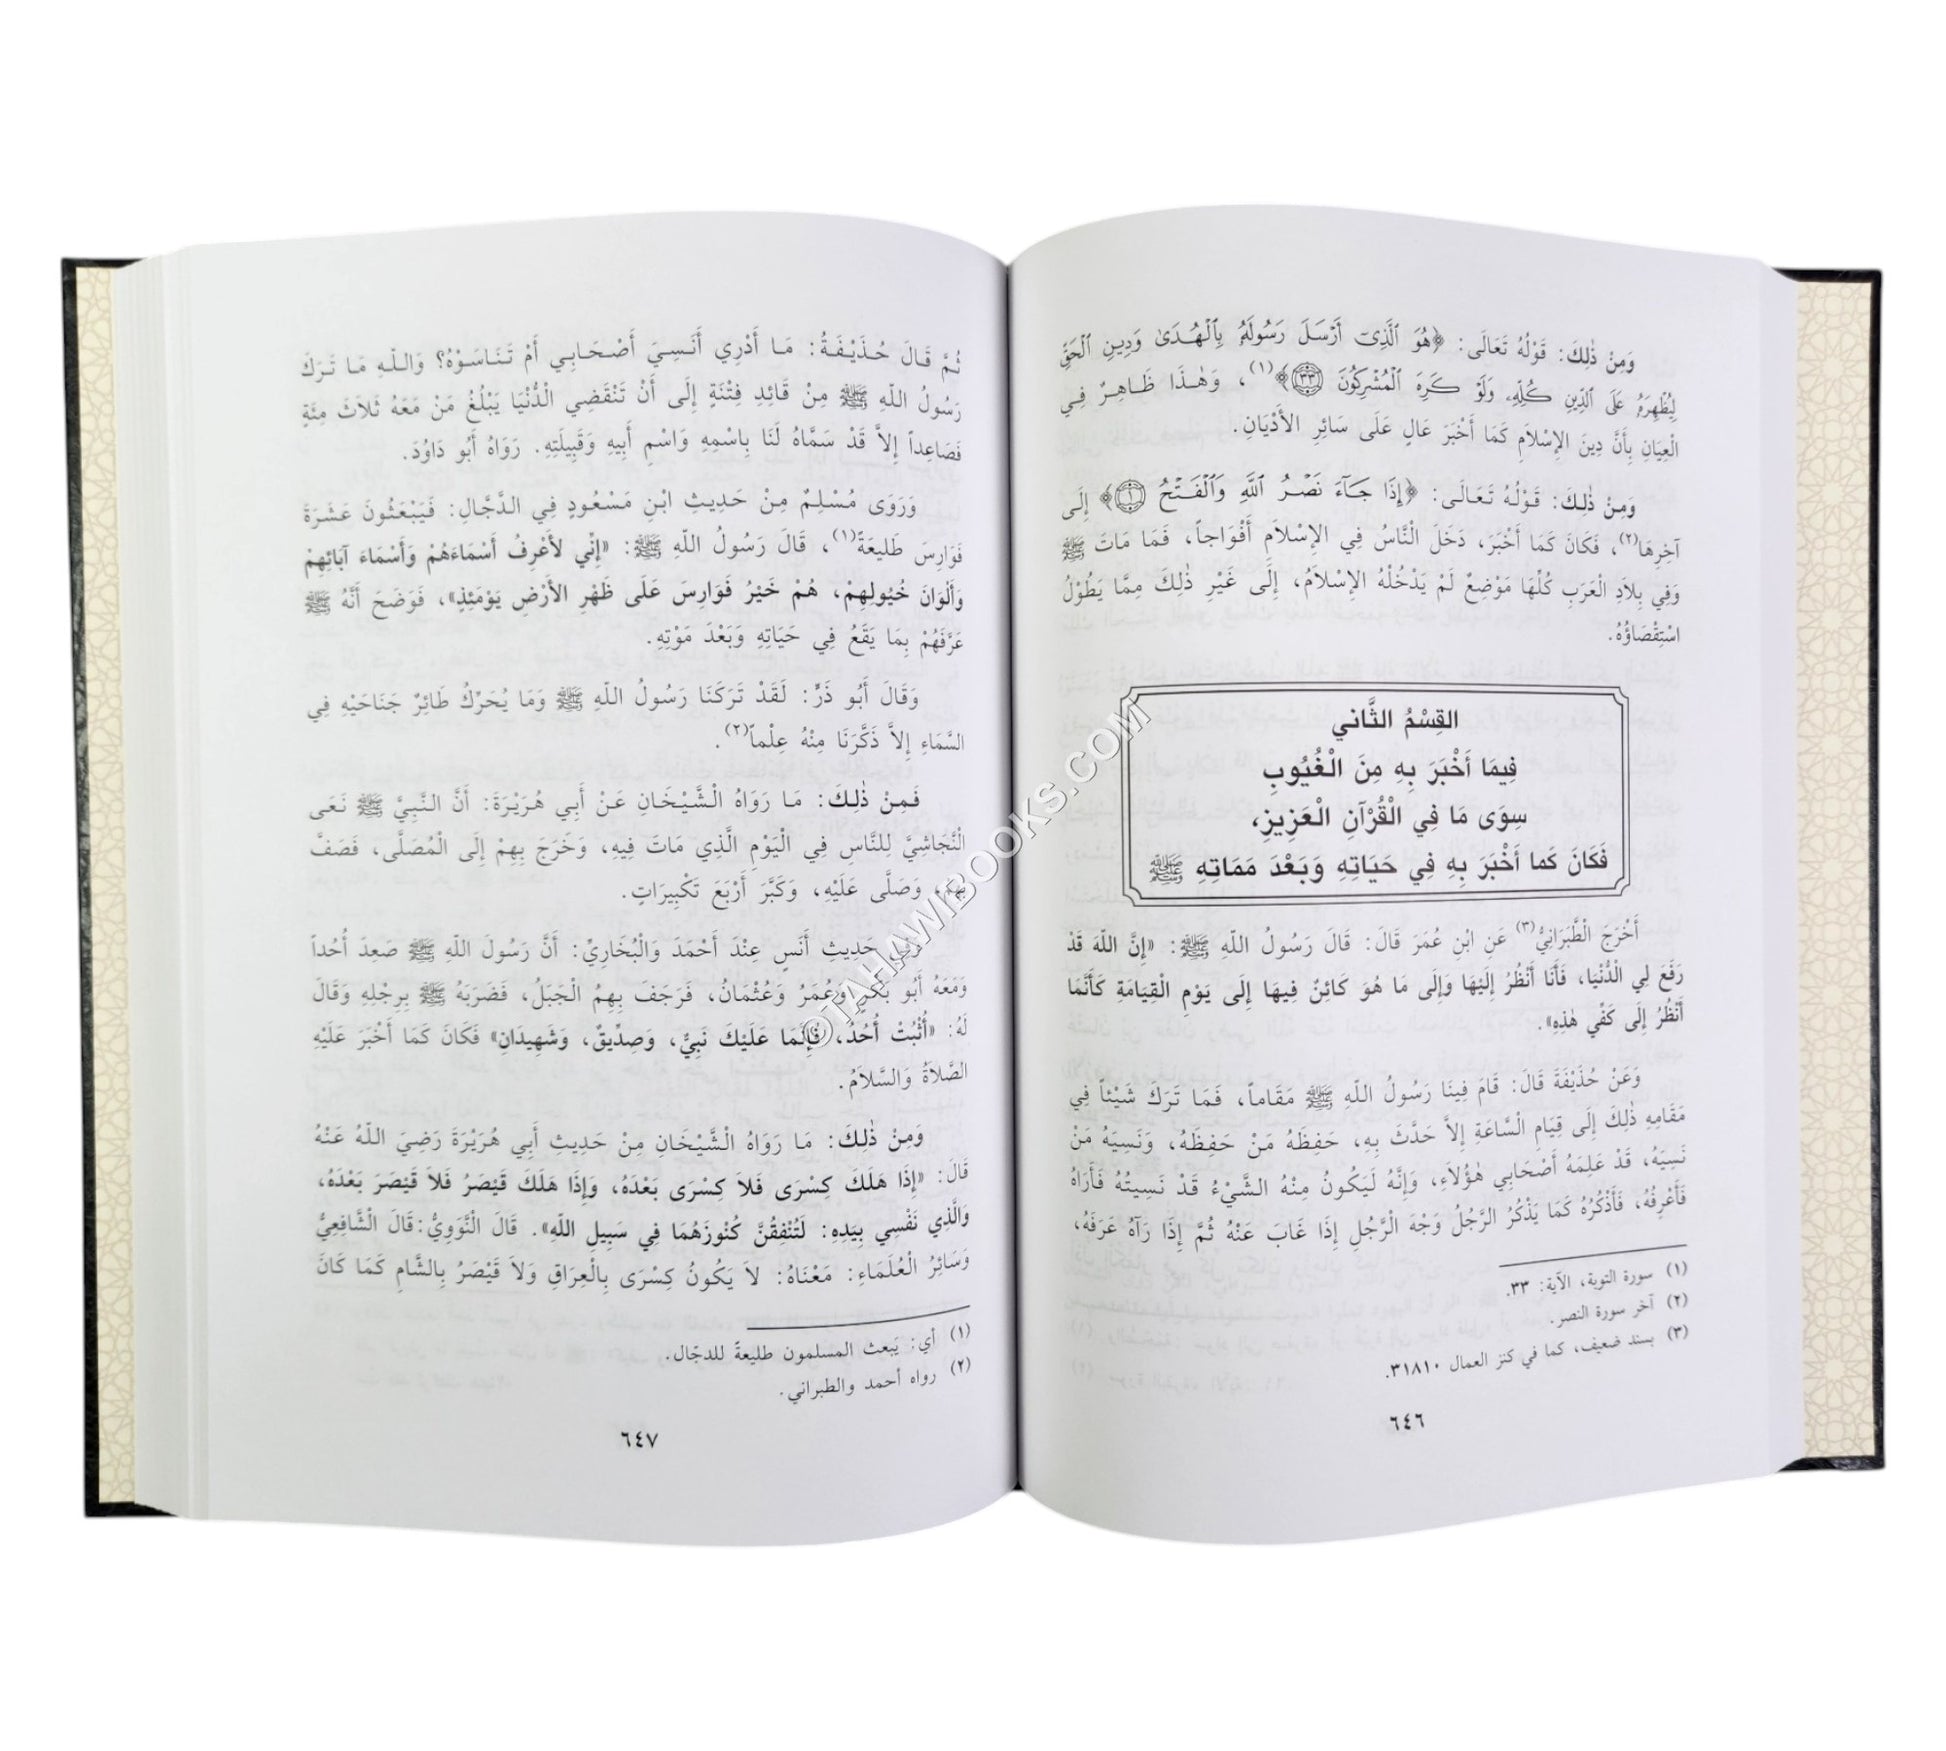 وَمِنْ ذٰلِكَ: قَوْلُهُ تَعَالَى: ﴿هُوَ ٱلَّذِىٓ أَرْسَلَ رَسُولَهُۥ بِٱلْهُدَىٰ وَدِينِ ٱلْحَقِّ
لِيُظْهِرَهُۥ عَلَى ٱلدِّينِ كُلِّهِۦ وَلَوْ كَرِهَ ٱلْمُشْرِكُونَ ٣٣﴾(١)، وَهٰذَا ظَاهِرٌ فِي
الْعِيَانِ بِأَنَّ دِينَ الإِسْلاَمِ كَمَا أَخْبَرَ عَالٍ عَلَى سَائِرِ الأَدْيَانِ.
وَمِنْ ذٰلِكَ: قَوْلُهُ تَعَالَى: ﴿إِذَا جَآءَ نَصْرُ ٱللَّهِ وَٱلْفَتْحُ ١﴾ إِلَى
آخِرِهَا(٢)، فَكَانَ كَمَا أَخْبَرَ، دَخَلَ النَّاسُ فِي الإِسْلاَمِ أَفْوَاجاً، فَمَا مَاتَ ﷺ
وَفِي بِلاَدِ الْعَرَبِ كُلِّهَا مَوْضِعٌ لَمْ يَدْخُلْهُ الإِسْلاَمُ، إِلَى غَيْرِ ذٰلِكَ مِمَّا يَطُوْلُ
اسْتِقْصَاؤُهُ.
القِسْمُ الثَّاني
فِيمَا أَخْبَرَ بِهِ مِنَ الْغُيُوبِ
سِوَى مَا فِي الْقُرْآنِ الْعَزِيزِ،
فَكَانَ كَما أَخْبَرَ بِهِ فِي حَيَاتِهِ وَبَعْدَ مَمَاتِهِ ﷺ
أَخْرَجَ الْطَّبَرَانِيُّ(٣) عَنِ ابْنِ عُمَرَ قَالَ: قَالَ رَسُولُ اللّهِ ﷺ: «إِنَّ اللهَ قَدْ
رَفَعَ لِي الْدُّنْيَا، فَأَنَا أَنْظُرُ إِلَيْهَا وَإِلَى مَا هُوَ كَائِنٌ فِيهَا إِلَى يَوْمِ الْقِيَامَةِ كَأَنَّمَا
أَنْظُرُ إِلَى كَفِّي هٰذِهِ».
وَعَنْ حُذَيْفَةَ قَالَ: قَامَ فِينَا رَسُولُ اللّهِ ﷺ مَقَاماً، فَمَا تَرَكَ شَيْئاً فِي
مَقَامِهِ ذٰلِكَ إِلَى قِيَامِ الْسَّاعَةِ إِلاَّ حَدَّثَ بِهِ، حَفِظَهُ مَنْ حَفِظَهُ، وَنَسِيَهُ مَنْ
نَسِيَهُ، قَدْ عَلِمَهُ أَصْحَابِي هٰؤُلاَءِ، وَإِنَّهُ لَيَكُونُ مِنْهُ الشَّيْءُ قَدْ نَسِيتُهُ فَأَرَاهُ
فَأَعْرِفُهُ، فَأَذْكُرُهُ كَمَا يَذْكُرُ الرَّجُلُ وَجْهَ الْرَّجُلِ إِذَا غَابَ عَنْهُ ثُمَّ إِذَا رَآهُ عَرَفَهُ،
(١) سورة التوبة، الآية: ٣٣.
(٢) آخر سورة النصر.
(٣) بسند ضعيف، كما في كنز العمال ٣١٨١٠.
٦٤٦
ثُمَّ قَالَ حُذَيْفَةُ: مَا أَدْرِي أَنَسِيَ أَصْحَابِي أَمْ تَنَاسَوْهُ؟ وَاللّهِ مَا تَرَكَ
رَسُولُ اللّهِ ﷺ مِنْ قَائِدِ فِتْنَةٍ إِلَى أَنْ تَنْقَضِي الْدُّنْيَا يَبْلُغُ مَنْ مَعَهُ ثَلاَثَ مِئَةٍ
فَصَاعِداً إِلاَّ قَدْ سَمَّاهُ لَنَا بِاسْمِهِ وَاسْمِ أَبِيهِ وَقَبِيلَتِهِ. رَوَاهُ أَبُو دَاوُدَ.
وَرَوَى مُسْلِمٌ مِنْ حَدِيثِ ابْنِ مَسْعُودٍ فِي الدَّجَّالِ: فَيَبْعَثُونَ عَشَرَةَ
فَوَارِسَ طَلِيعَةً(١)، قَالَ رَسُولُ اللّهِ ﷺ: «إِنِّي لأَعْرِفُ أَسْمَاءَهُمْ وَأَسْمَاءَ آبَائِهِمْ
وَأَلْوَانَ خُيُولِهِمْ، هُمْ خَيْرُ فَوَارِسَ عَلَى ظَهْرِ الأَرْضِ يَوْمَئِذٍ»، فَوَضَحَ أَنَّهُ ﷺ
عَرَّفَهُمْ بِمَا يَقَعُ فِي حَيَاتِهِ وَبَعْدَ مَوْتِهِ.
وَقَالَ أَبُو ذَرٍّ: لَقَدْ تَرَكَنَا رَسُولُ اللّهِ ﷺ وَمَا يُحَرِّكُ طَائِرٌ جَنَاحَيْهِ فِي
السَّمَاءِ إِلاَّ ذَكَّرَنَا مِنْهُ عِلْماً(٢).
فَمِنْ ذٰلِكَ: مَا رَوَاهُ الْشَّيْخَانِ عَنْ أَبِي هُرَيْرَةَ: أَنَّ النَّبِيَّ ﷺ نَعَى
الْنَّجَاشِيَّ لِلنَّاسِ فِي الْيَوْمِ الَّذِي مَاتَ فِيهِ، وَخَرَجَ بِهِمْ إِلَى الْمُصَلَّى، فَصَفَّ
بِهِمْ، وَصَلَّى عَلَيْهِ، وَكَبَّرَ أَرْبَعَ تَكْبِيرَاتٍ.
وَفِي حَدِيثِ أَنَسٍ عِنْدَ أَحْمَدَ وَالْبُخَارِيِّ: أَنَّ رَسُولَ اللّهِ ﷺ صَعِدَ أُحُداً
وَمَعَهُ أَبُو بَكْرٍ وَعُمَرُ وَعُثْمَانُ، فَرَجَفَ بِهِمُ الْجَبَلُ، فَضَرَبَهُ ﷺ بِرِجْلِهِ وَقَالَ
لَهُ: «أُثْبُتْ أُحُدُ، فَإِنَّمَا عَلَيْكَ نَبِيٌّ، وَصِدِّيقٌ، وَشَهِيدَانِ» فَكَانَ كَمَا أَخْبَرَ عَلَيْهِ
الصَّلاَةُ وَالسَّلاَمُ.
وَمِنْ ذٰلِكَ: مَا رَوَاهُ الْشَّيْخَانِ مِنْ حَدِيثِ أَبِي هُرَيْرَةَ رَضِيَ اللّهُ عَنْهُ
قَالَ: «إِذَا هَلَكَ كِسْرَى فَلاَ كِسْرَى بَعْدَهُ، وَإِذَا هَلَكَ قَيْصَرُ فَلاَ قَيْصَرَ بَعْدَهُ،
وَالَّذِي نَفْسِي بِيَدِهِ: لَتُنْفِقُنَّ كُنُوزَهُمَا فِي سَبِيلِ اللّهِ». قَالَ الْنَّوَوِيُّ: قَالَ الْشَّافِعِيُّ
وَسَائِرُ الْعُلَمَاءِ: مَعْنَاهُ: لاَ يَكُونُ كِسْرَى بِالْعِرَاقِ وَلاَ قَيْصَرُ بِالشَّامِ كَمَا كَانَ
(١) أي: يَبعث المسلمون طليعةً للدجّال.
(٢) رواه أحمد والطبراني.
٦٤٧
©TAHAWIBOOKS.COM